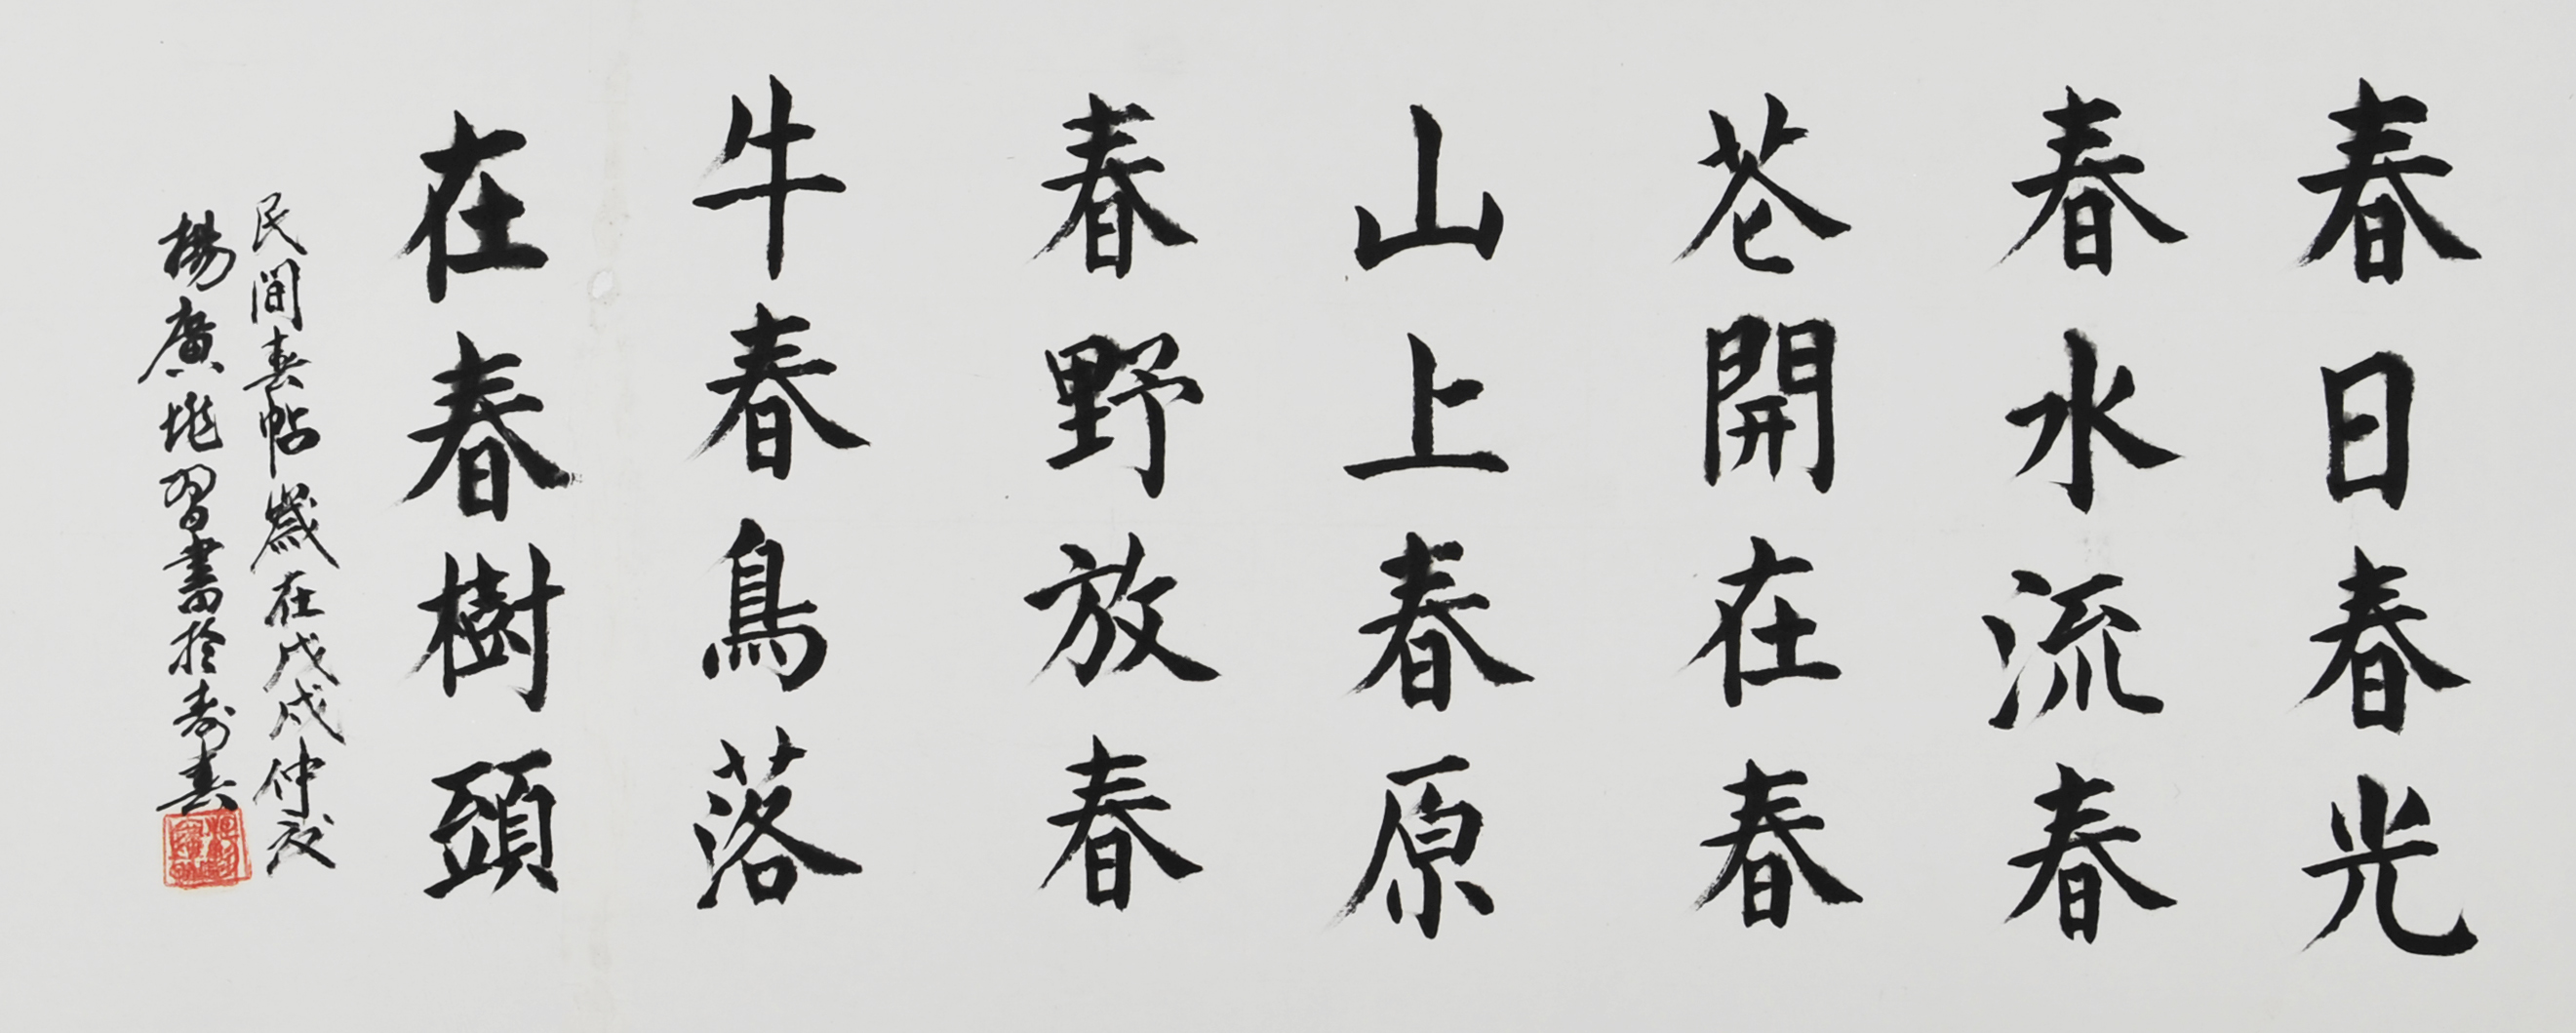 春日春光
春水流春
苍開在春
山上春原
春野放春
牛春鳥落
在春樹頭
民间春帖歲在戊戌仲
楊廣 習書於寿春